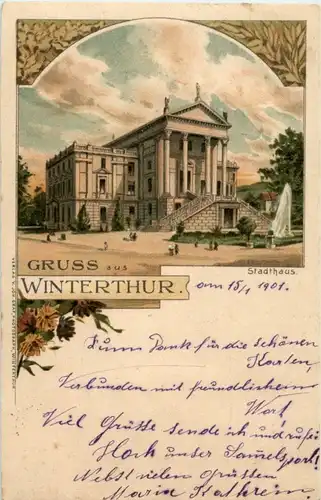 GRUSS aus
WINTERTHUR.
Stadthaus.
am 15/1 1901.
Zum Dank für die schönen
Karten,
Verbunden mit freundlichem
Wort,
Viel Grüsse sende ich und rufe:
Hoch unser Sammelsport!
Nebst vielen Grüssen
Maria